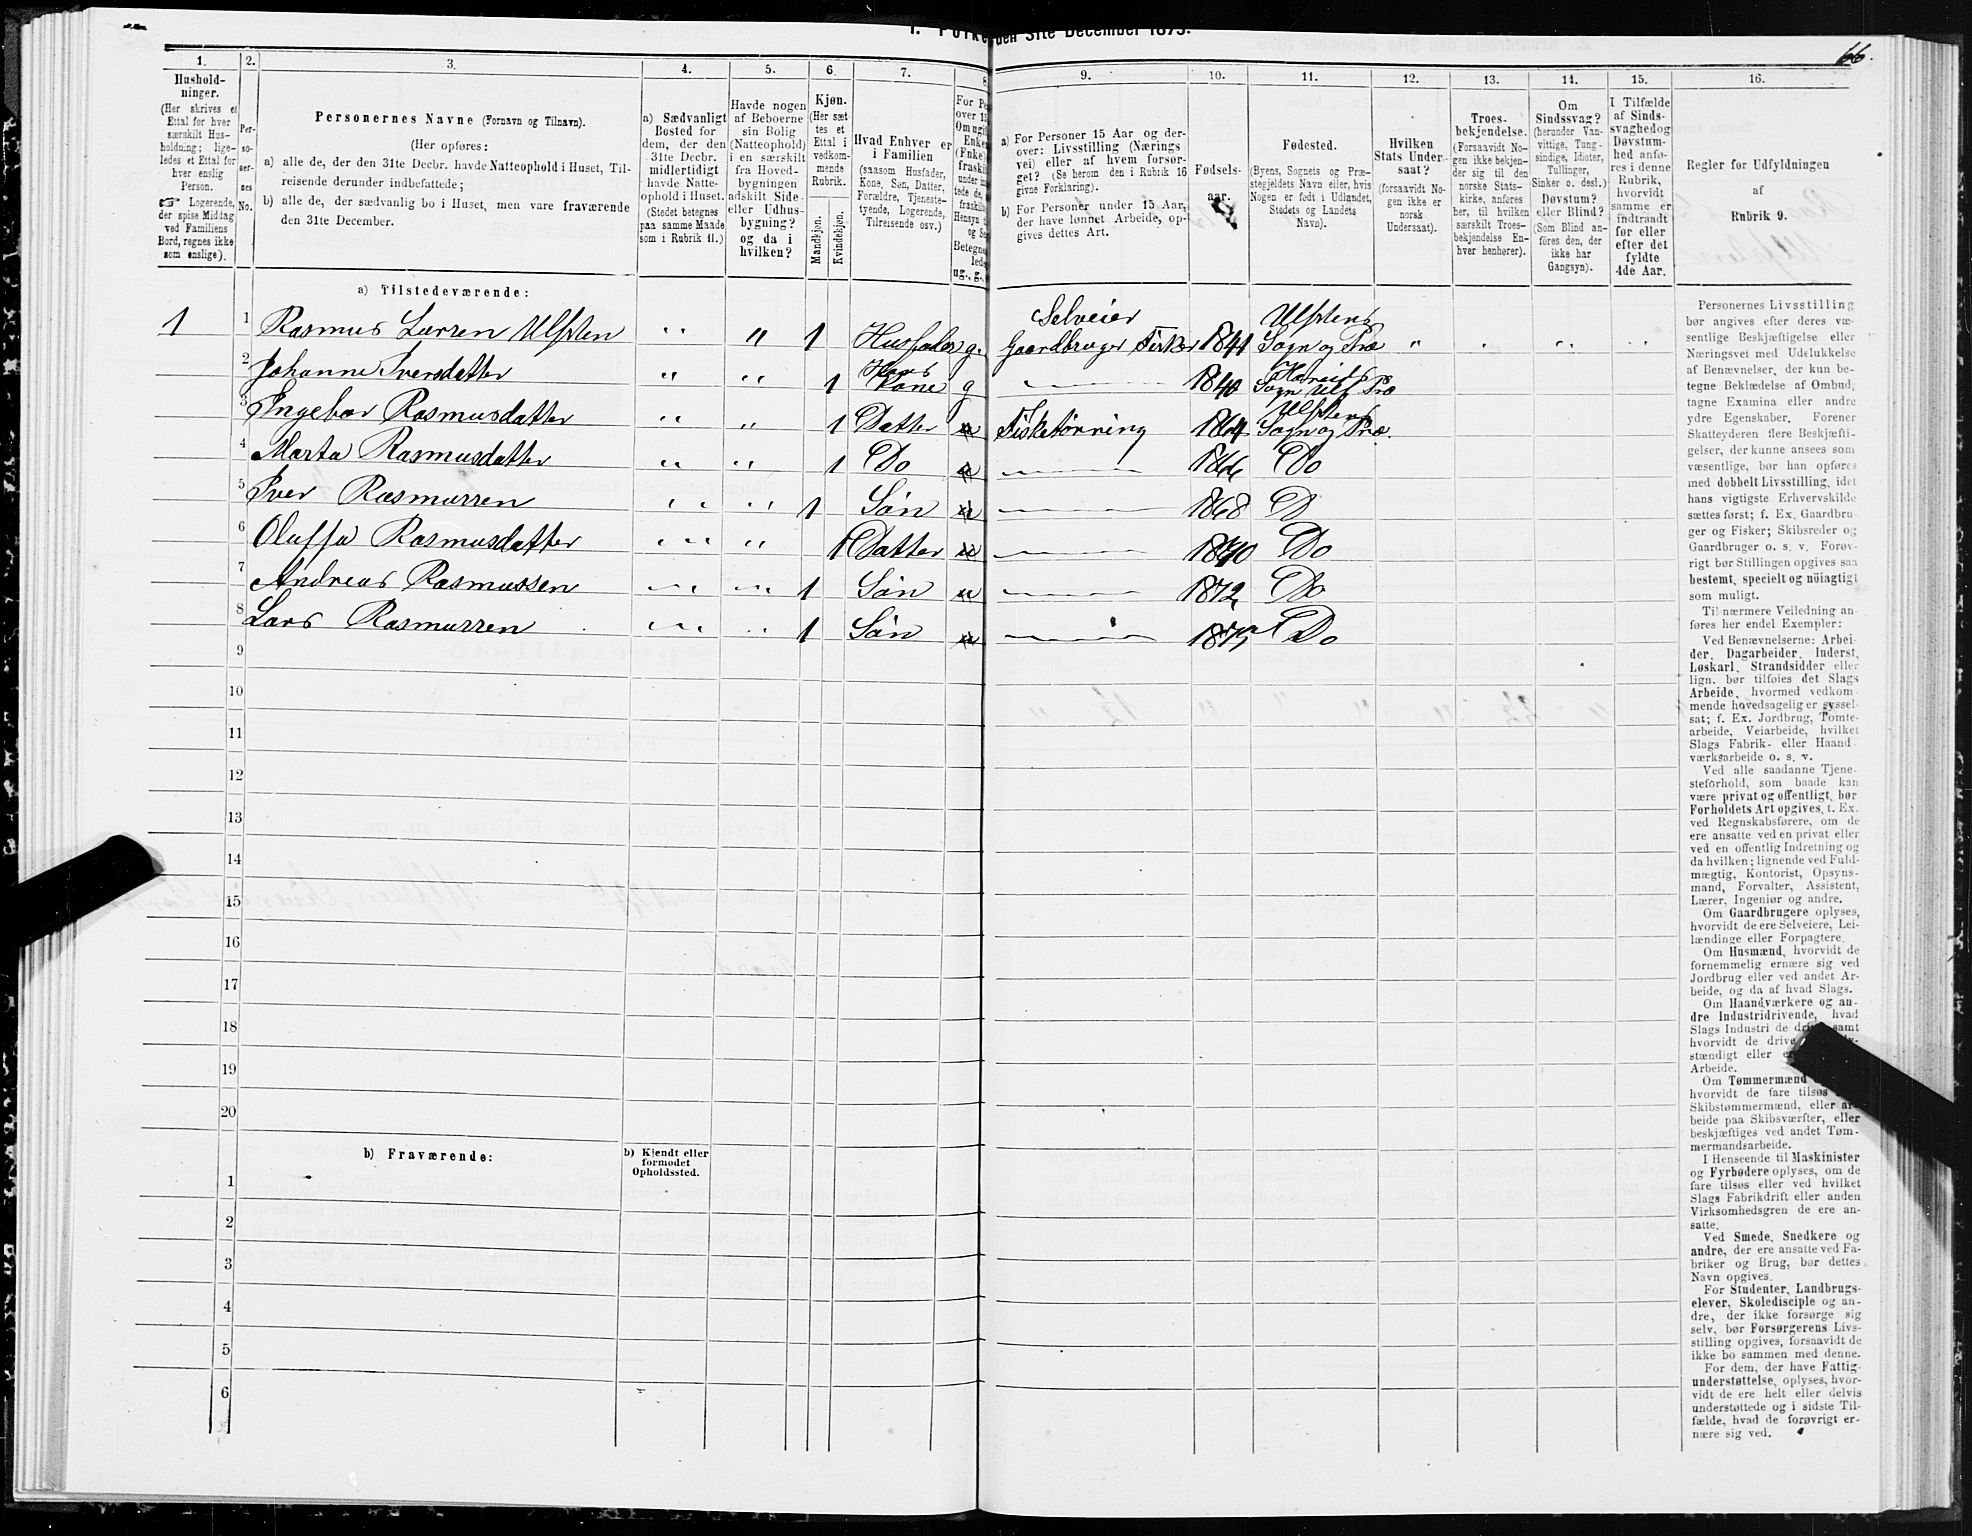 66.
den 31te December 1875.
1. 2. 3. 4. 5. 6. 7. 8 9. 10. 11. 12. 13. 14. 15. 16.
Hushold-
ninger.
(Her skrives et
Ettal for hver
særskilt Hus-
holdning; lige-
ledes et Ettal for
hver enslig
Person.
☞ Logerende,
der spise Middag
ved Familiens
Bord, regnes ikke
som enslige).
Per-
so-
ner-
nes
No.
Personernes Navne (Fornavn og Tilnavn).
(Her opføres:
a) alle de, der den 31te Decbr. havde Natteophold i Huset, Til-
reisende derunder indbefattede;
b) alle de, der sædvanlig bo i Huset, men vare fraværende
den 31te December.
a) Sædvanligt
Bosted for
dem, der den
31te Decbr.
midlertidigt
havde Natte-
ophold i Huset.
(Stedet betegnes
paa samme Maade
som i Rubrik 11.)
Havde nogen
af Beboerne
sin Bolig
(Natteophold)
i en særskilt
fra Hoved-
bygningen
adskilt Side-
eller Udhus-
bygning?
og da i
hvilken?
Kjøn.
(Her sæt-
tes et
Ettal i
vedkom-
mende
Rubrik.
Mandkjøn.
Kvindekjøn.
Hvad Enhver er
i Familien
(saasom Husfader,
Kone, Søn, Datter,
Forældre, Tjeneste-
tyende, Logerende,
Tilreisende osv.)
a) For Personer 15 Aar og der-
over: Livsstilling (Nærings
vei) eller af hvem forsør-
get? (Se herom den i Rubrik 16
givne Forklaring).
b) For Personer under 15 Aar,
der have lønnet Arbeide, op-
gives dettes Art.
Fødsels-
aar.
Fødested.
(Byens, Sognets og Præ-
stegjeldets Navn eller, hvis
Nogen er født i Udlandet,
Stedets og Landets
Navn).
Hvilken
Stats Under-
saat?
(forsaavidt No-
gen ikke er
norsk
Undersaat).
Troes-
bekjendelse.
(Forsaavidt No-
gen ikke bekjen-
der sig til den
norske Stats-
kirke, anføres
her, til hvilken
særskilt Troes-
bekjendelse En-
hver henhører).
Om
Sindssvag?
(herunder Van-
vittige, Tung-
sindige, Idioter,
Tullinger,
Sinker o. desl.)
Døvstum?
eller Blind?
(Som Blind an-
føres den, der
ikke har
Gangsyn).
I Tilfælde
af Sinds-
svaghed og
Døvstum-
hed anfø-
res i denne
Rubrik,
hvorvidt
samme er
indtraadt
før eller
efter det
fyldte
4de Aar.
Regler for Udfyldningen
af
Rubrik 9.
a) Tilstedeværende:
1 1 Rasmus Larsen Ulsten " " 1 Husfader g. Selveier Gaardbruger Fisker 1841 Ulstens Sogn og Præ " " " "
2 Johanne Iversdatter " " 1 Hans Kone g 1840 Hareids Sogn Ulf Præ
3 Ingebor Rasmusdatter " " 1 Datter u Fisketørring 1864 Ulstens Sogn og Præ.
4 Marta Rasmusdatter " " 1 Do u 1866 Do
5 Iver Rasmussen " " 1 Søn u 1868 D
6 Oluffa Rasmusdatter " " 1 Datter u 1870 Do
7 Andreas Rasmussen " " 1 Søn u 1872 Do
8 Lars Rasmussen " " 1 Søn u 1875 Do
9
10
11
12
13
14
15
16
17
18
19
20
b) Fraværende:
b) Kjendt eller
formodet
Opholdssted.
1
2
3
4
5
6
Personernes Livsstilling
bør angives efter deres væ-
sentlige Beskjæftigelse eller
Næringsvei med Udelukkelse
af Benævnelser, der kun be-
tegne Beklædelse af Ombud,
tagne Examina eller andre
ydre Egenskaber. Forener
Skatteyderen flere Beskjæfti-
gelser, der kunne ansees som
væsentlige, bør han opføres
med dobbelt Livsstilling, idet
hans vigtigste Erhvervskilde
sættes først; f. Ex. Gaardbru-
ger og Fisker; Skibsreder og
Gaardbruger o. s. v. Forøv-
rigt bør Stillingen opgives saa
bestemt, specielt og nöiagtigt
som muligt.
Til nærmere Veiledning an-
føres her endel Exempler:
Ved Benævnelserne: Arbei-
der, Dagarbeider, Inderst,
Løskarl, Strandsidder eller
lign. bør tilføies det Slags
Arbeide, hvormed vedkom-
mende hovedsagelig er syssel-
sat; f. Ex. Jordbrug, Tomte-
arbeide, Veiarbeide, hvilket
Slags Fabrik- eller Haand-
værksarbeide o. s. v.
Ved alle saadanne Tjene-
steforhold, som baade kan
være privat og offentligt, bør
Forholdets Art opgives, t. Ex.
ved Regnskabsførere, om de
ere ansatte ved en privat eller
ved en offentlig Indretning og
da hvilken; lignende ved Fuld-
mægtig, Kontorist, Opsyns-
mand, Forvalter, Assistent,
Lærer, Ingeniør og andre.
Om Gaardbrugere oplyses,
hvorvidt de ere Selveiere, Lei-
lændinge eller Forpagtere.
Om Husmænd, hvorvidt de
fornemmelig ernære sig ved
Jordbrug eller ved andet Ar-
beide, og da af hvad Slags.
Om Haandværkere og an-
dre Industridrivende, hvad
Slags Industri de drive samt
hvorvidt de drive
stændigt eller
Arbeide.
Om Tømmermænd
hvorvidt de fare tilsøs
Skibstømmermænd, eller ar-
beide paa Skibsværfter, eller
beskjæftiges ved andet Tøm-
mermandsarbeide.
I Henseende til Maskinister
og Fyrbødere oplyses, om de
fare tilsøs eller ved hvilket
Slags Fabrikdrift eller anden
Virksomhedsgren de ere an-
satte.
Ved Smede, Snedkere og
andre, der ere ansatte ved Fa-
briker og Brug, bør dettes
Navn opgives.
For Studenter, Landbrugs-
elever, Skoledisciple og an-
dre, der ikke forsørge sig
selv, bør Forsørgerens Livs-
stilling opgives, forsaavidt de
ikke bo sammen med denne.
For dem, der have Fattig-
understøttelse, oplyses, hvor-
vidt de ere helt eller delvis
understøttede og i sidste Til-
fælde, hvad de forøvrigt er-
nære sig ved.